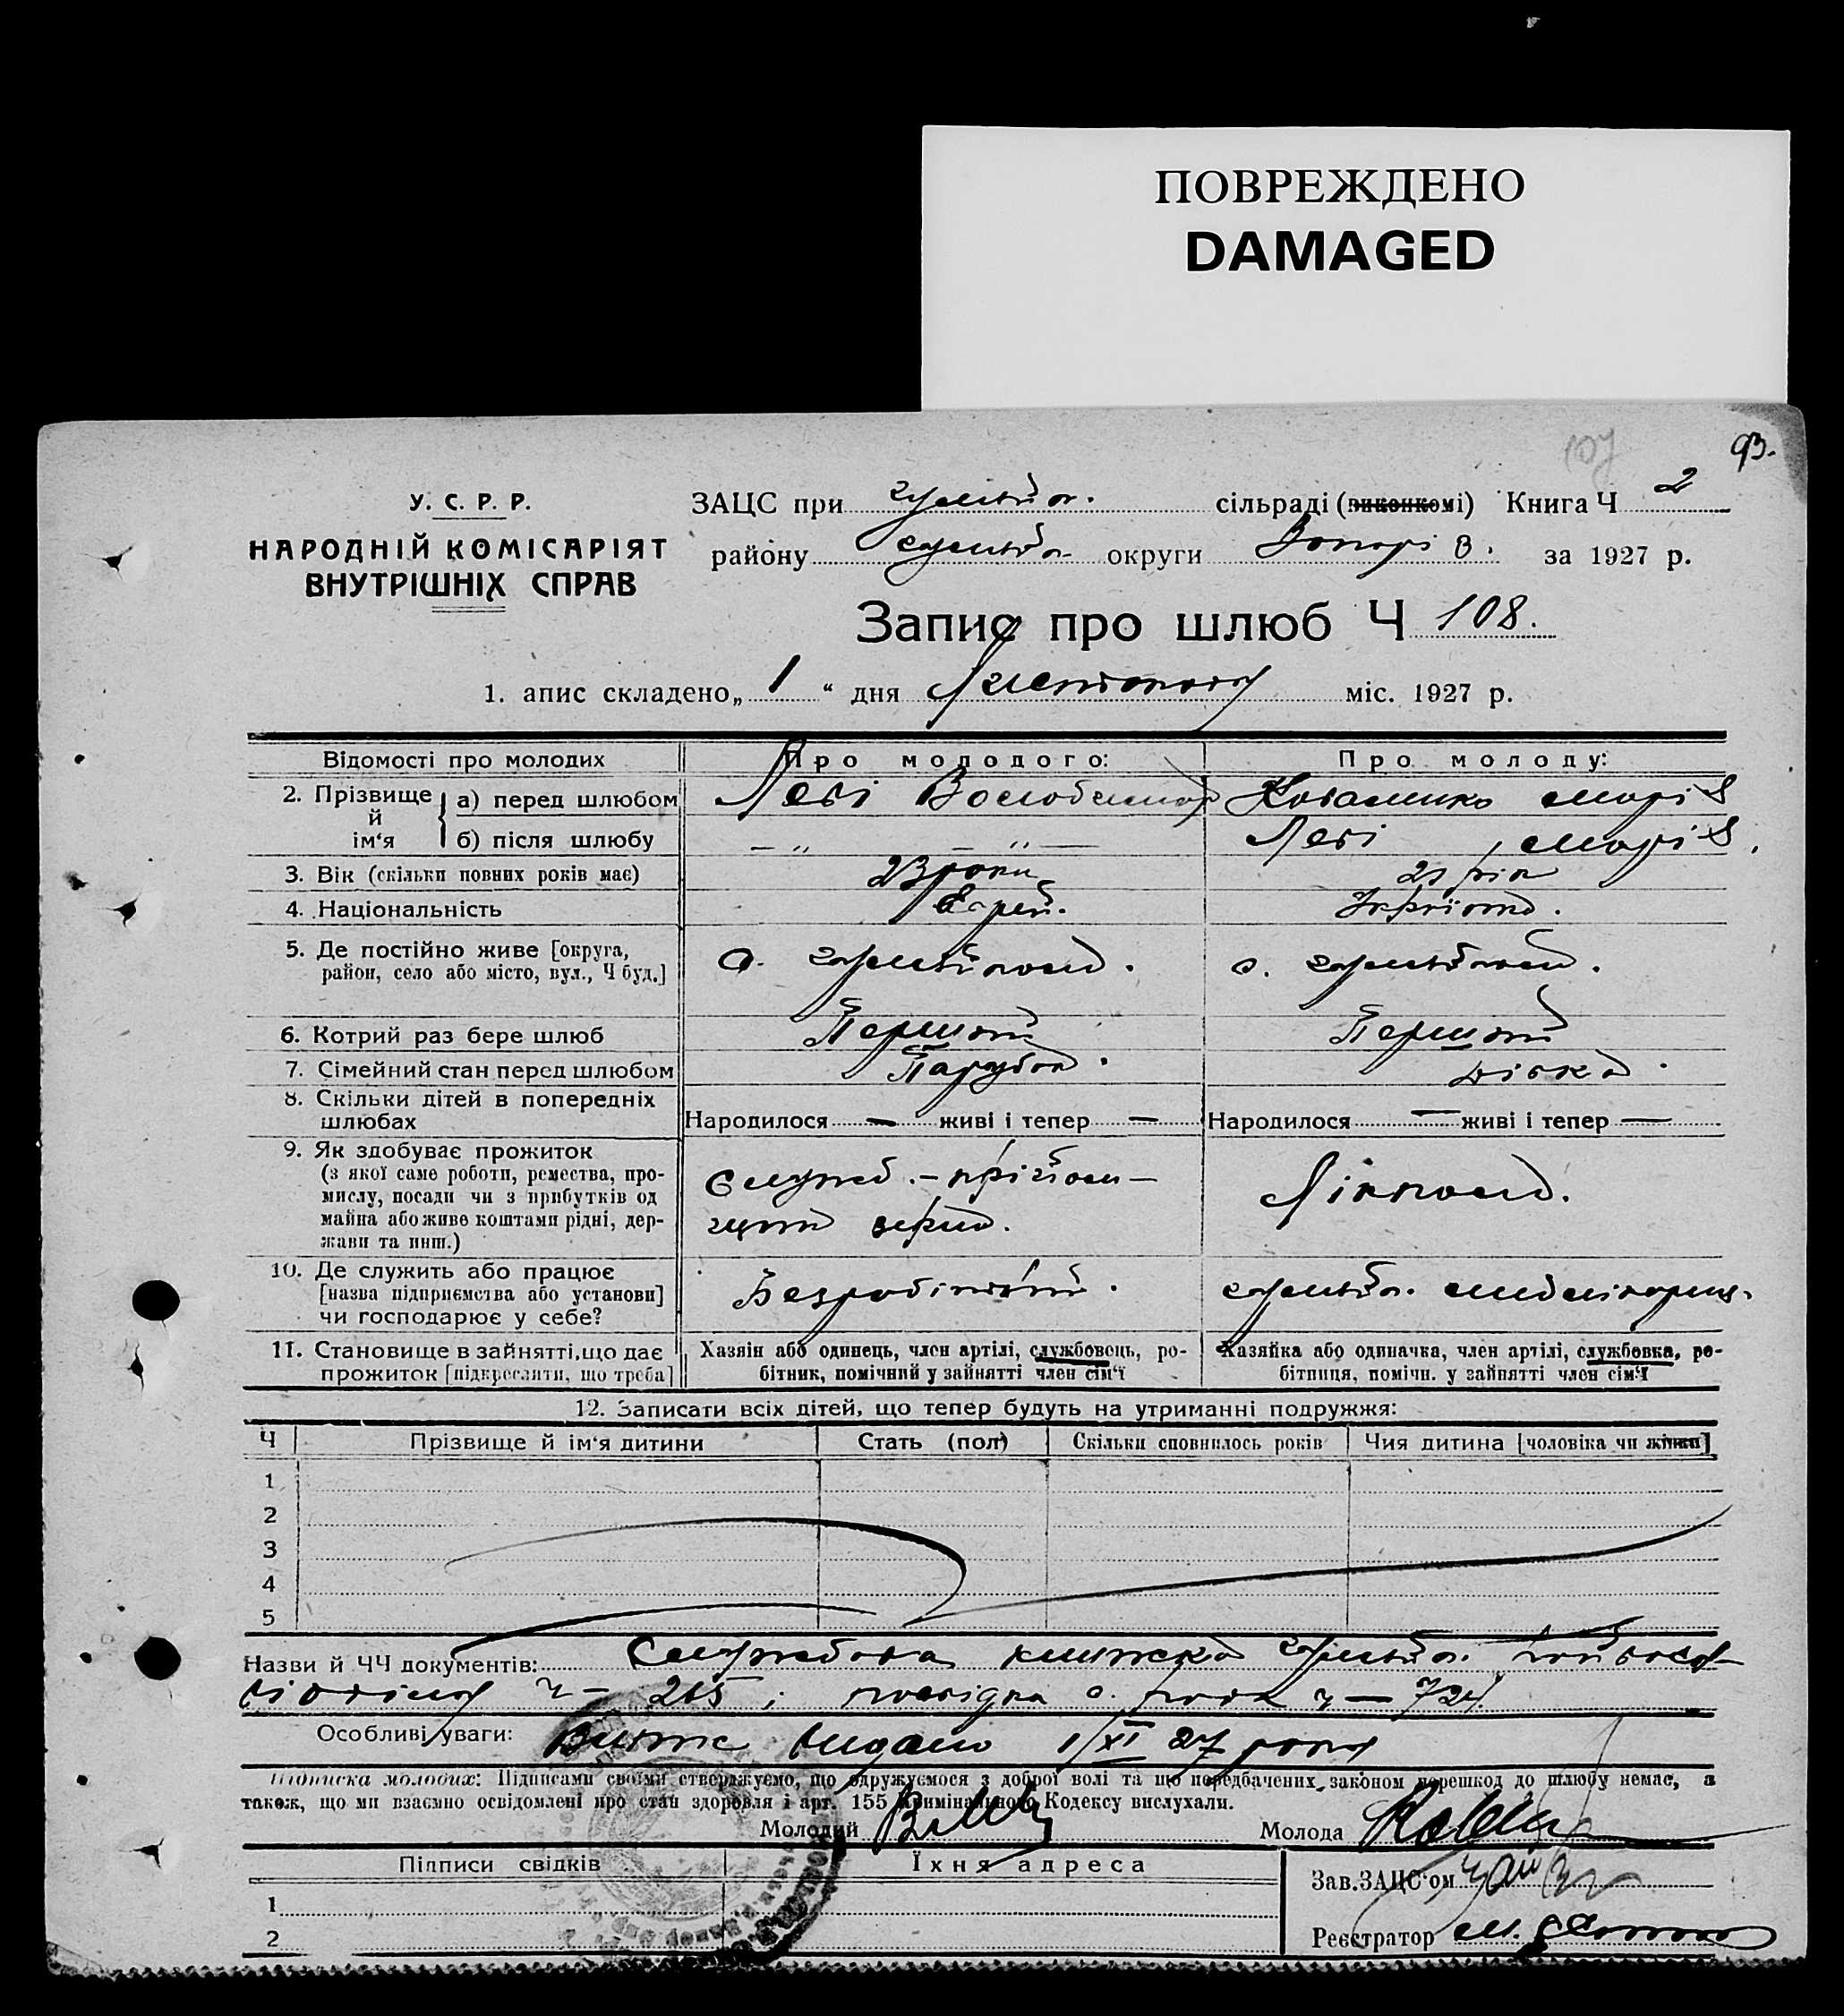 ПОВРЕЖДЕНО
DAMAGED
93.
У. С. Р. Р.
НАРОДНІЙ КОМІСАРІЯТ
ВНУТРІШНІХ СПРАВ
ЗАЦС при сільраді (виконкомі) Книга Ч 2
району округи за 1927 р.
Запис про шлюб Ч 108.
1. апис складено „ 1 “ дня Листопада міс. 1927 р.
Відомості про молодих Про молодого: Про молоду:
2. Прізвище й ім‘я а) перед шлюбом Леві Володимир Коваленко Марія
б) після шлюбу — „ — — „ — Леві Марія
3. Вік (скільки повних років має) 23 роки 21 рік
4. Національність Єврей. Українка.
5. Де постійно живе [округа,
район, село або місто, вул., Ч буд.] с. с.
6. Котрий раз бере шлюб Перший Перший
7. Сімейний стан перед шлюбом Парубок. Дівка.
8. Скільки дітей в попередніх
шлюбах Народилося — живі і тепер — Народилося — живі і тепер —
9. Як здобуває прожиток
(з якої саме роботи, ремества, про-
мислу, посади чи з прибутків од
майна або живе коштами рідні, дер-
жави та инш.) Службов. – прийом-
щик зерна. Лікпом.
10. Де служить або працює
[назва підприємства або установи]
чи господарює у себе? Безробітний.
11. Становище в зайнятті, що дає
прожиток [підкреслити, що треба]
Хазяін або одинець, член артілі, службовець, ро-
бітник, помічний у зайнятті член сім‘ї
Хазяйка або одиначка, член артілі, службовка, ро-
бітниця, помічн. у зайнятті член сім‘ї
12. Записати всіх дітей, що тепер будуть на утриманні подружжя:
Ч Прізвище й ім‘я дитини Стать (пол) Скільки сповнилось років Чия дитина [чоловіка чи жінки]
1
2
3
4
5
Назви й ЧЧ документів: Службова книжка
ч – 265; посвідка с. ч — 724.
Особливі уваги: Витяг видано 1/XI 27 року
Підписка молодих: Підписами своїми стверджуємо, що одружуємося з доброї волі та що передбачених законом перешкод до шлюбу немає, а
також, що ми взаємно освідомлені про стан здоровля і арт. 155 Кримінального Кодексу вислухали.
Молодий Молода
Підписи свідків Їхня адреса
1
2
Зав.ЗАЦС‘ом
Реєстратор